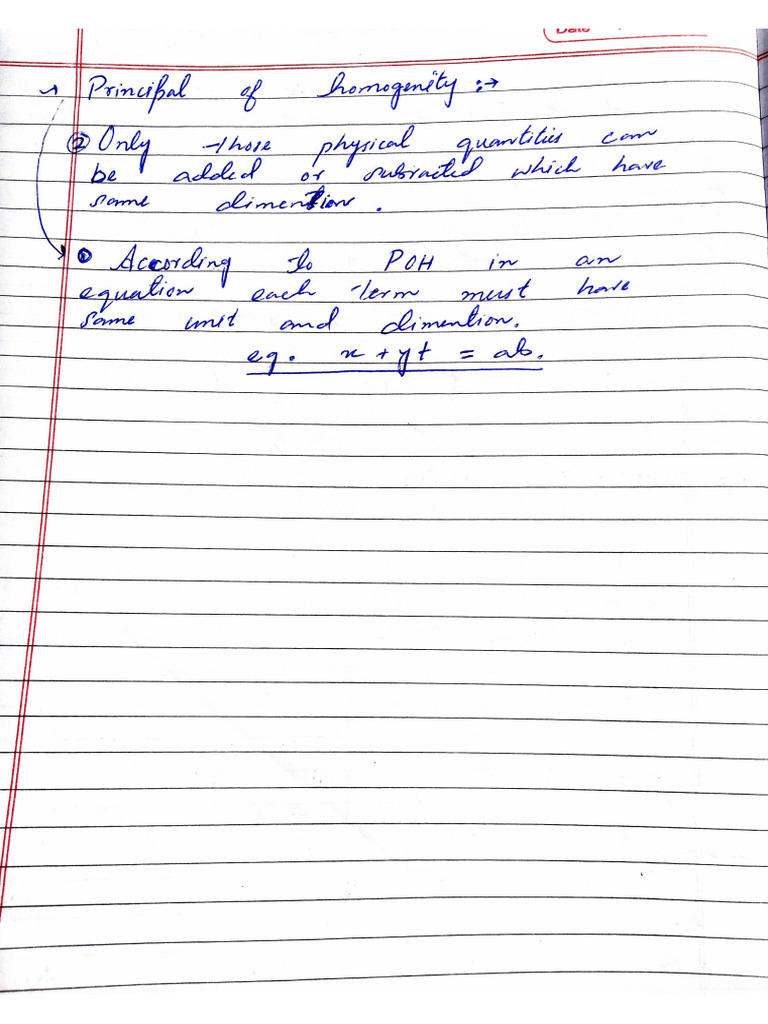 Date
→ Principal of homogenity :→
② Only those physical quantities can
be added or subracted which have
same dimention .
① According to POH in an
equation each term must have
same unit and dimention.
eg. x + yt = ab.